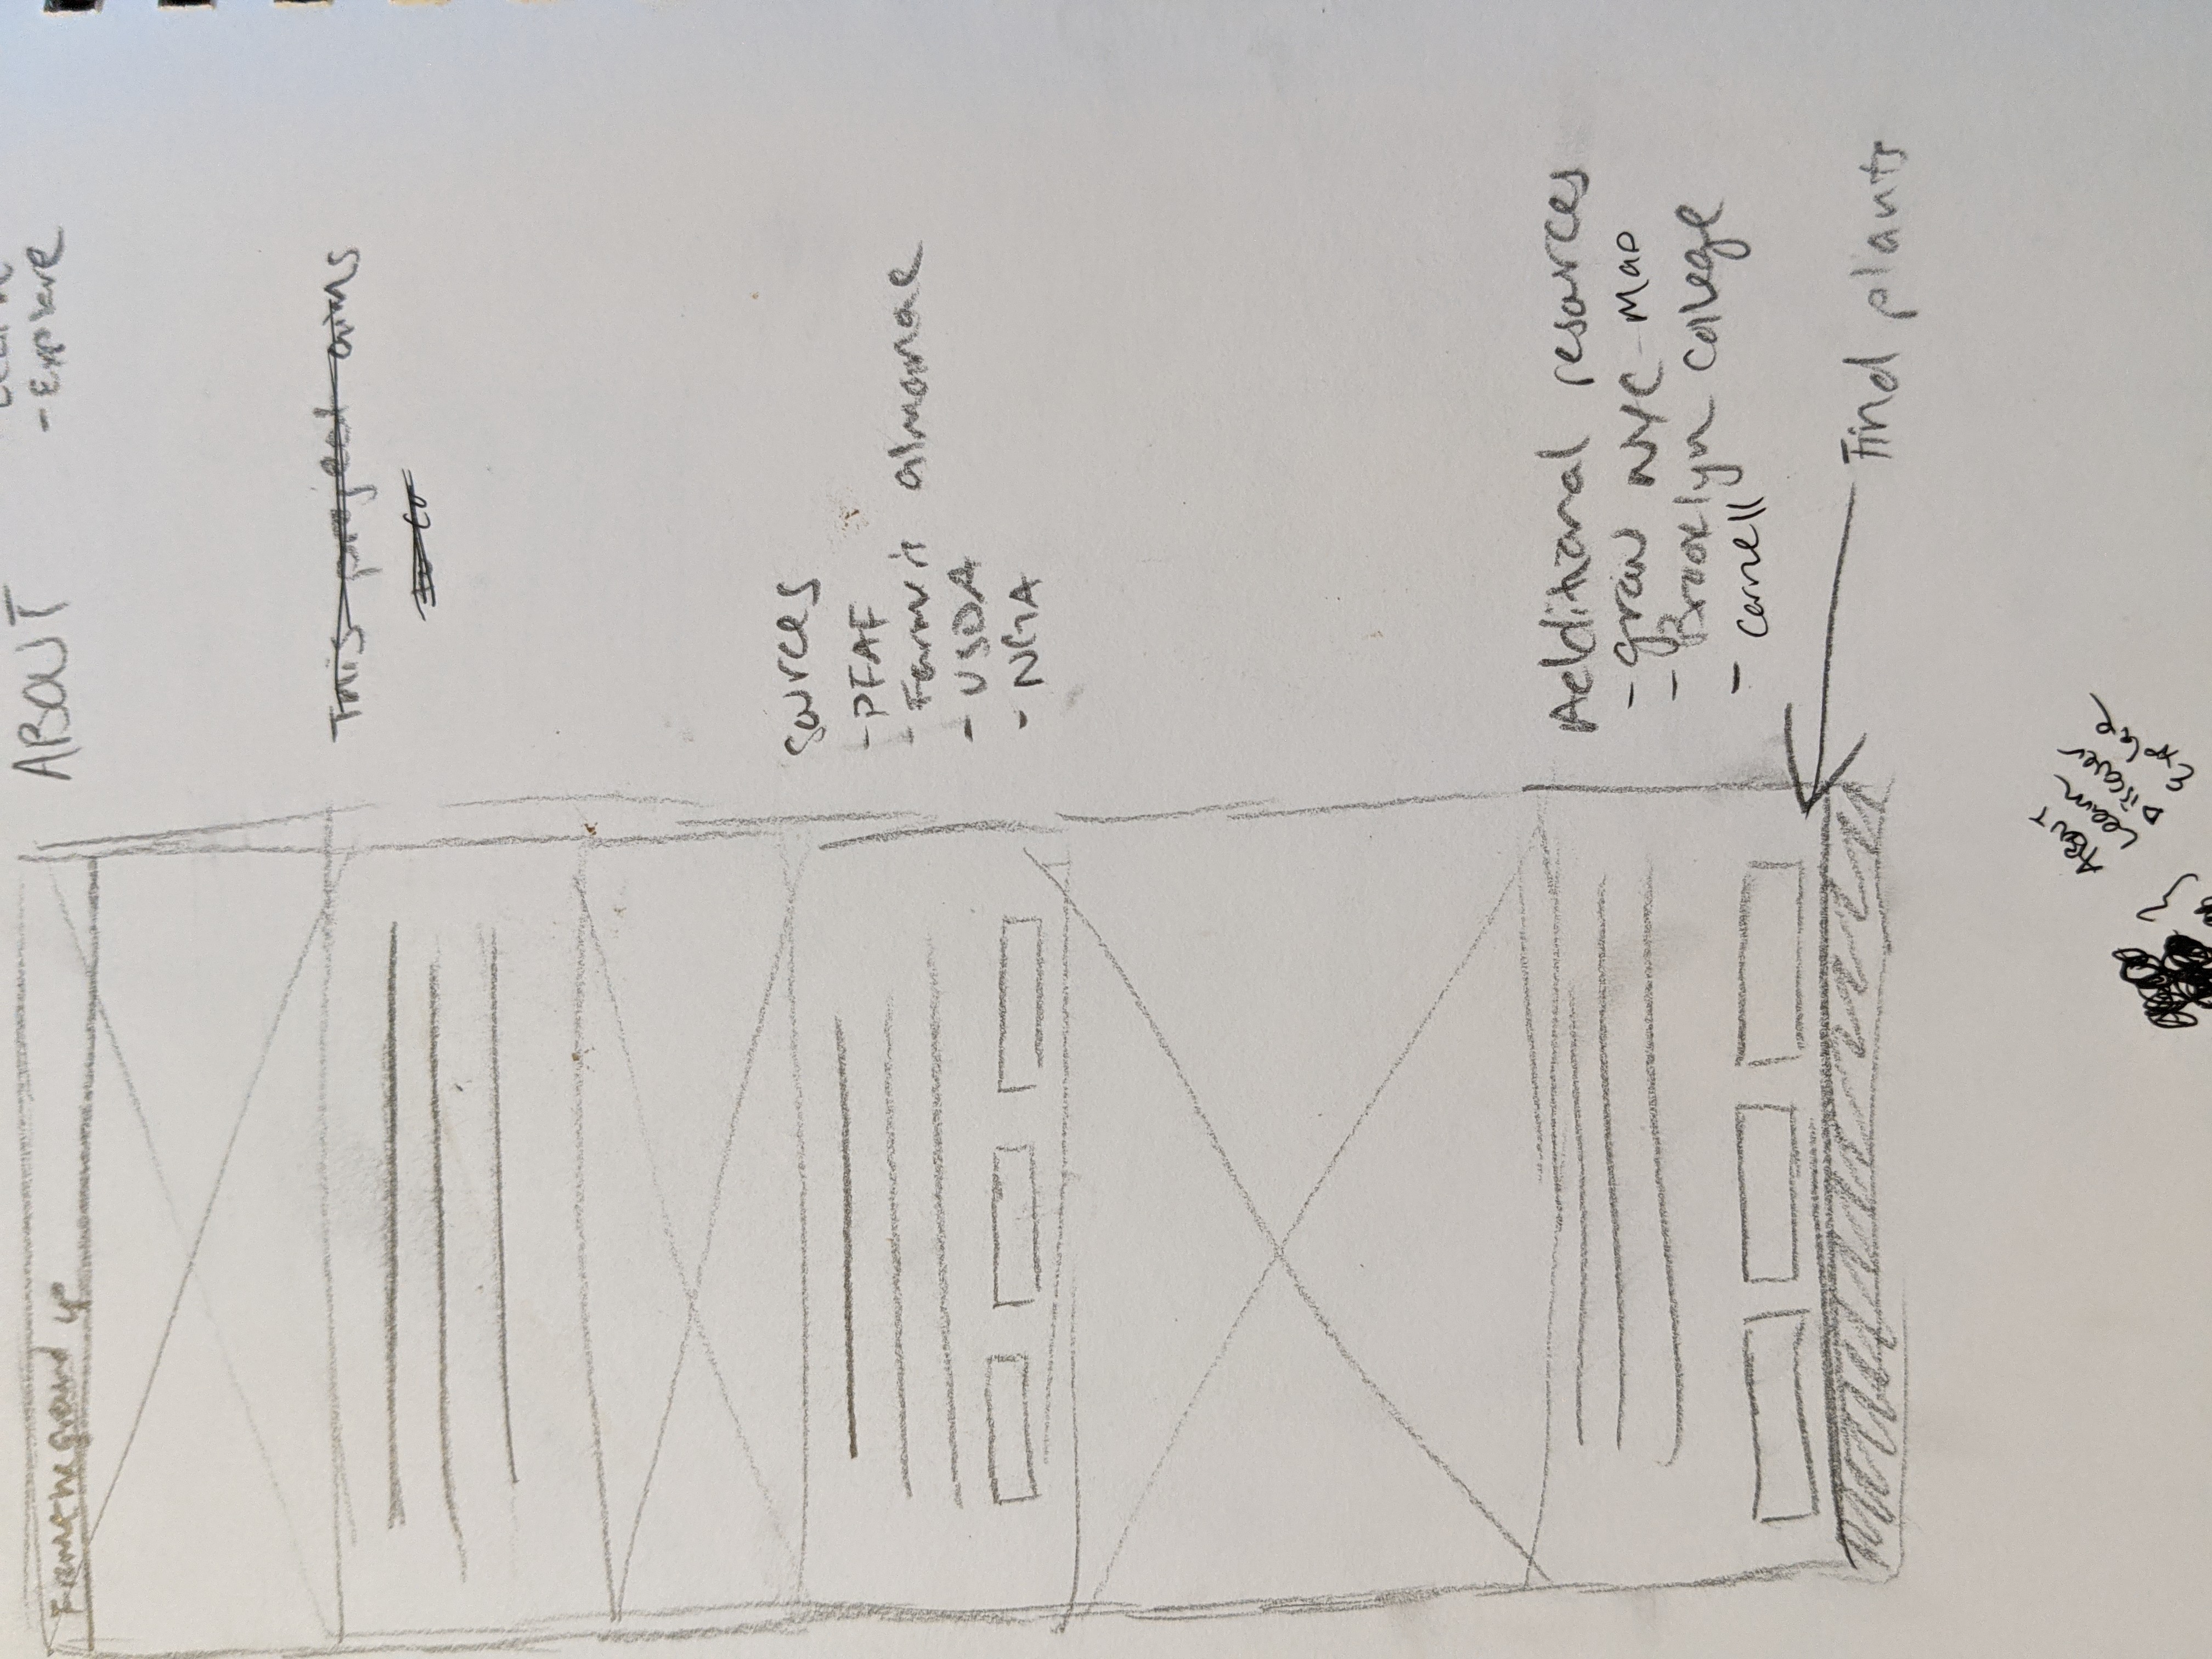 From the ground up
ABOUT
Learn
- Explore
This project aims
to co
Sources
- PFAF
- Farmer's almanac
- USDA
- NGA
Additional resources
- grow NYC - Map
- Brooklyn College
- Cornell
Find plants
ABOUT
Learn
Discover
Explore